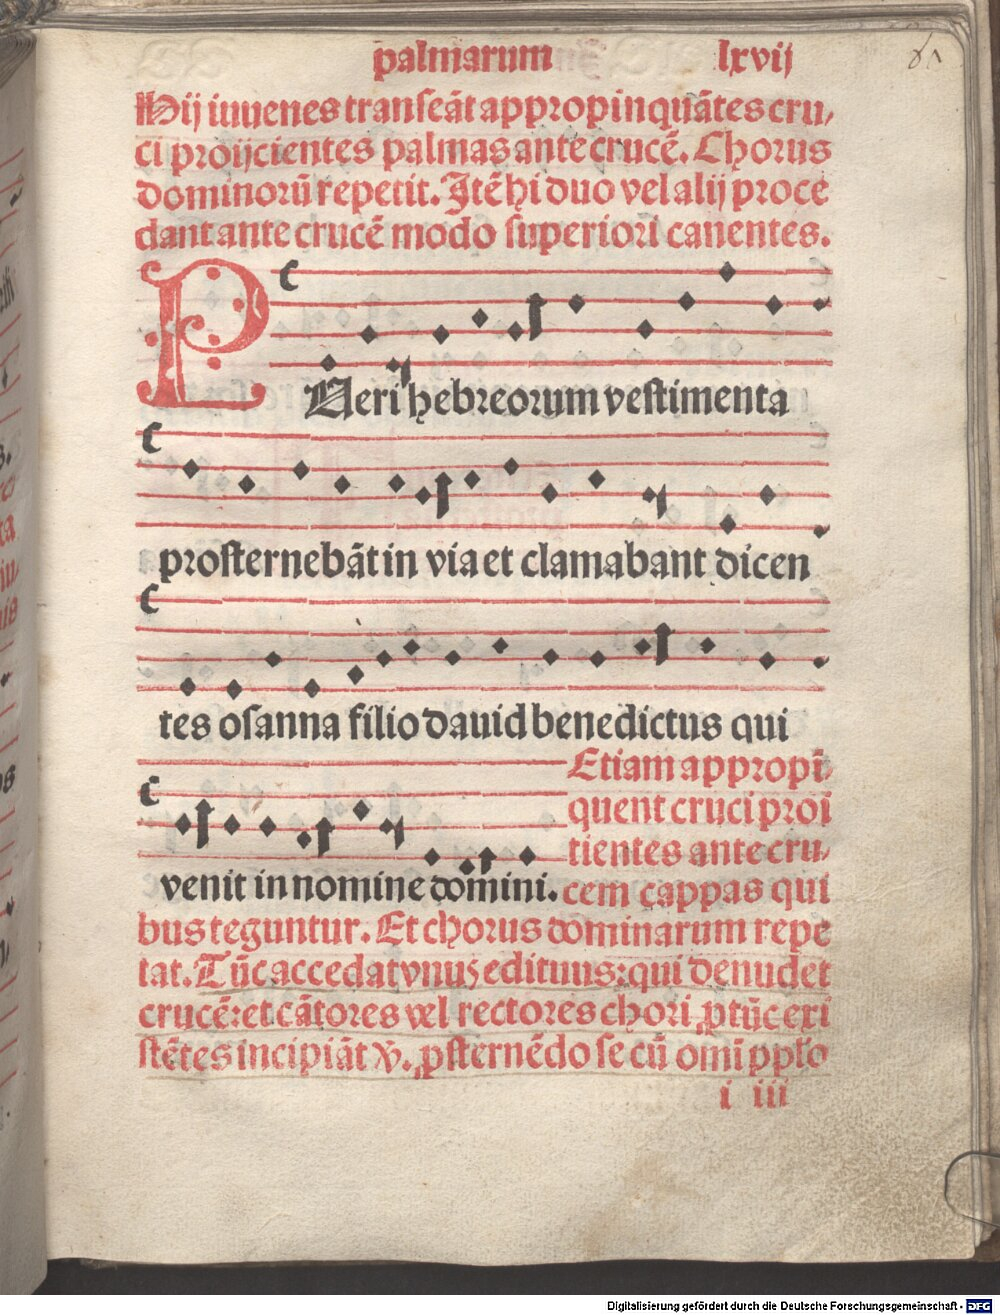 palmarum lxvij
61
Hij iuuenes tranſeāt appropinquātes cru⸗
ci proijcientes palmas ante crucē. Chorus
dominorū repetit. Itē hi duo vel alij proce
dant ante crucē modo ſuperiori canentes.
PUeri hebreorum veſtimenta
proſternebāt in via et clamabant dicen
tes oſanna filio dauid benedictus qui
Etiam appropī⸗
quent cruci proi
tientes ante cru⸗
venit in nomine domini. cem cappas qui
bus teguntur. Et chorus dominarum repe
tat. Tūc accedat vnus edituus: qui denudet
crucē: et cātores vel rectores chori ꝓ tūc exi
ſtētes incipiāt ℣. ꝓſternēdo ſe cū omī ppło
i iii
Digitalisierung gefördert durch die Deutsche Forschungsgemeinschaft - DFG